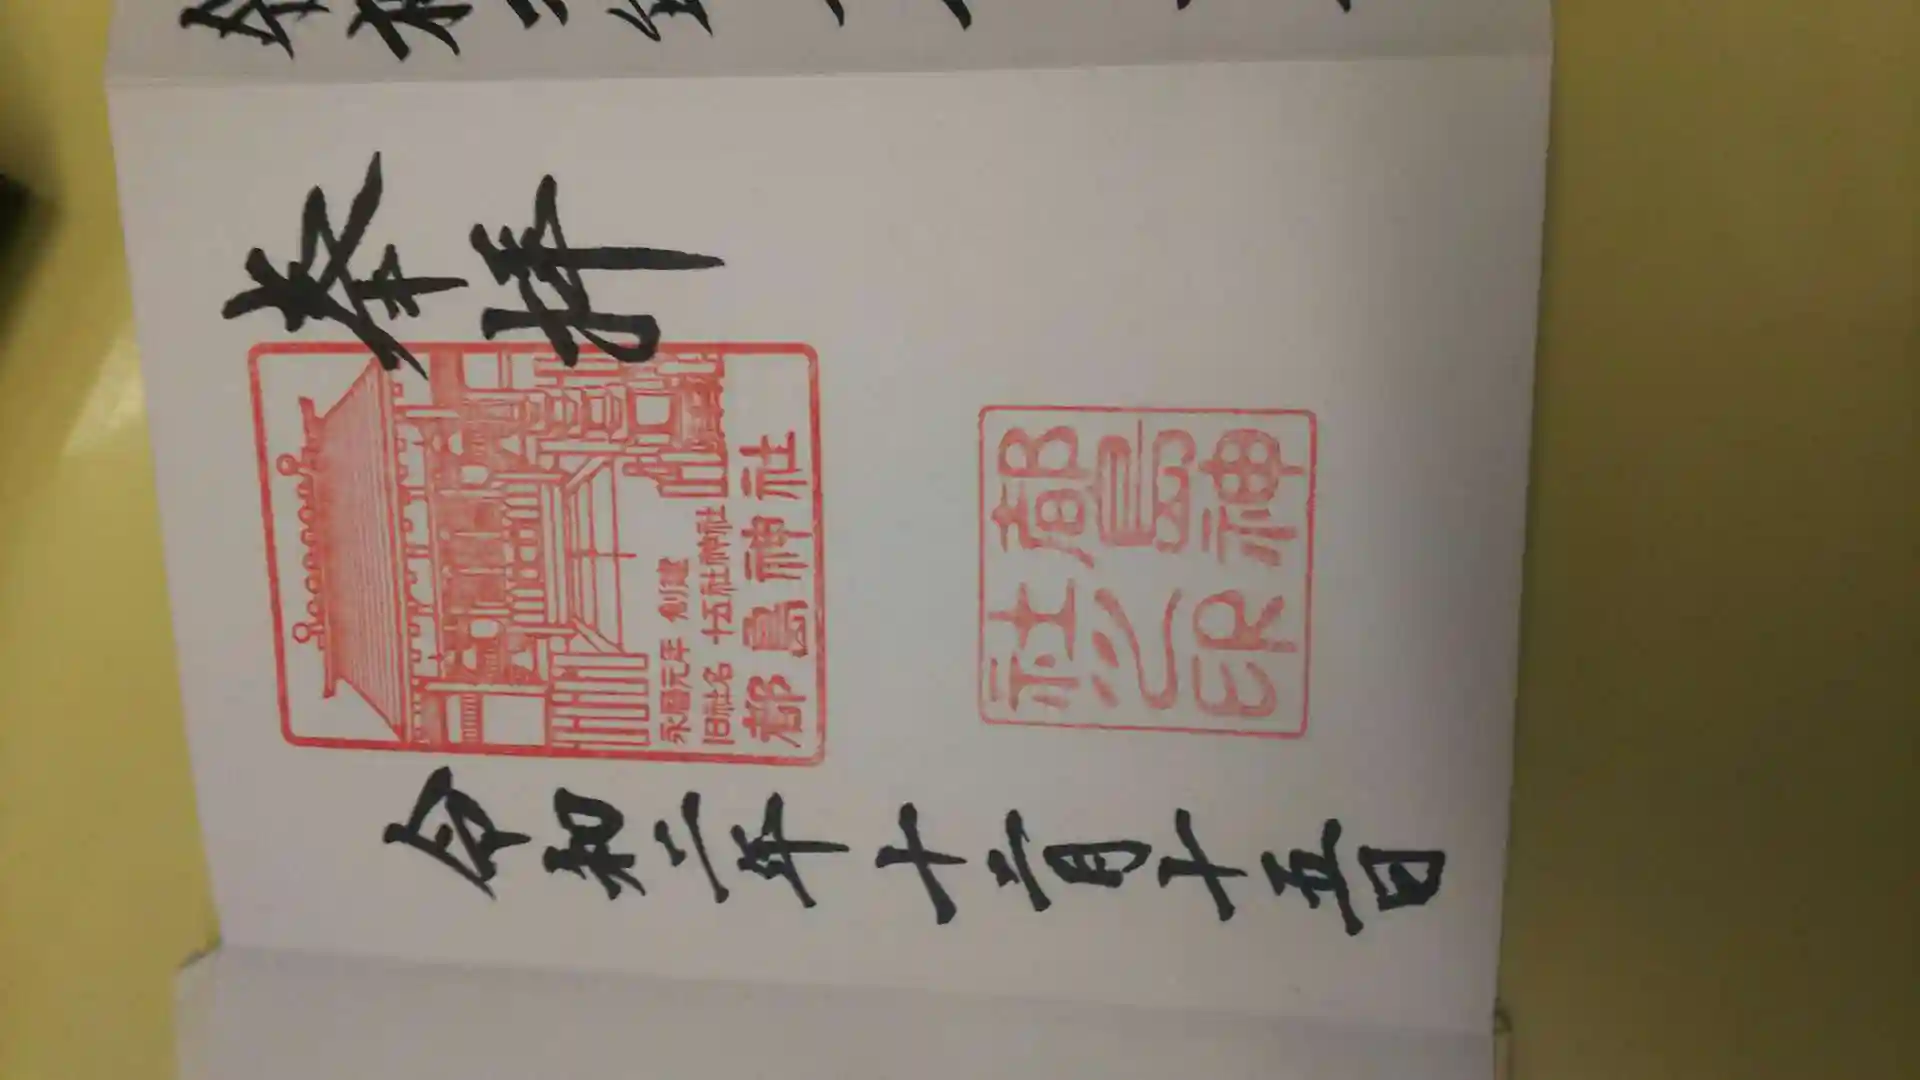 奉拝
永暦元年 創建
旧社名 十五社神社
都島神社
都島神
社之印
令和二年十二月十五日